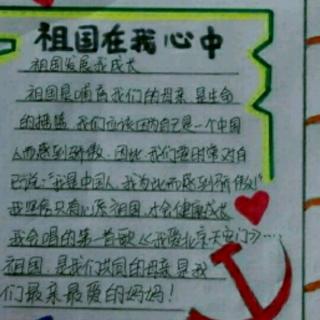 祖国在我心中
祖国发展我成长
祖国是哺育我们的母亲,是生命
的摇篮,我们应该因为自己是一个中国
人而感到骄傲。因此,我们要时常对自
己说:“我是中国人,我为此而感到骄傲!”
我坚信只有心系祖国,才会健康成长
我会唱的第一首歌《我爱北京天安门》…
祖国,是我们共同的母亲,是我
们最亲最爱的妈妈!